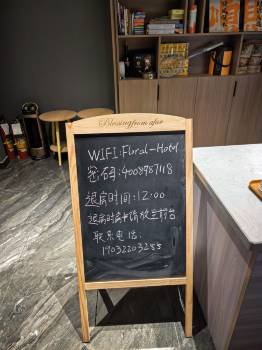 Blessing from afar
WIFI:Flural-Hotel
密码:4008987118
退房时间:12:00
退房时房卡请放至前台
联系电话:
17032203255